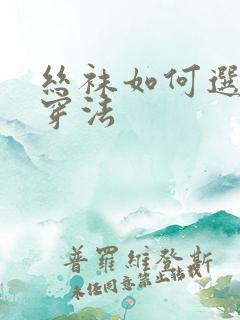 絲袜如何選
穿法
普羅維登斯
未经同意禁止转载